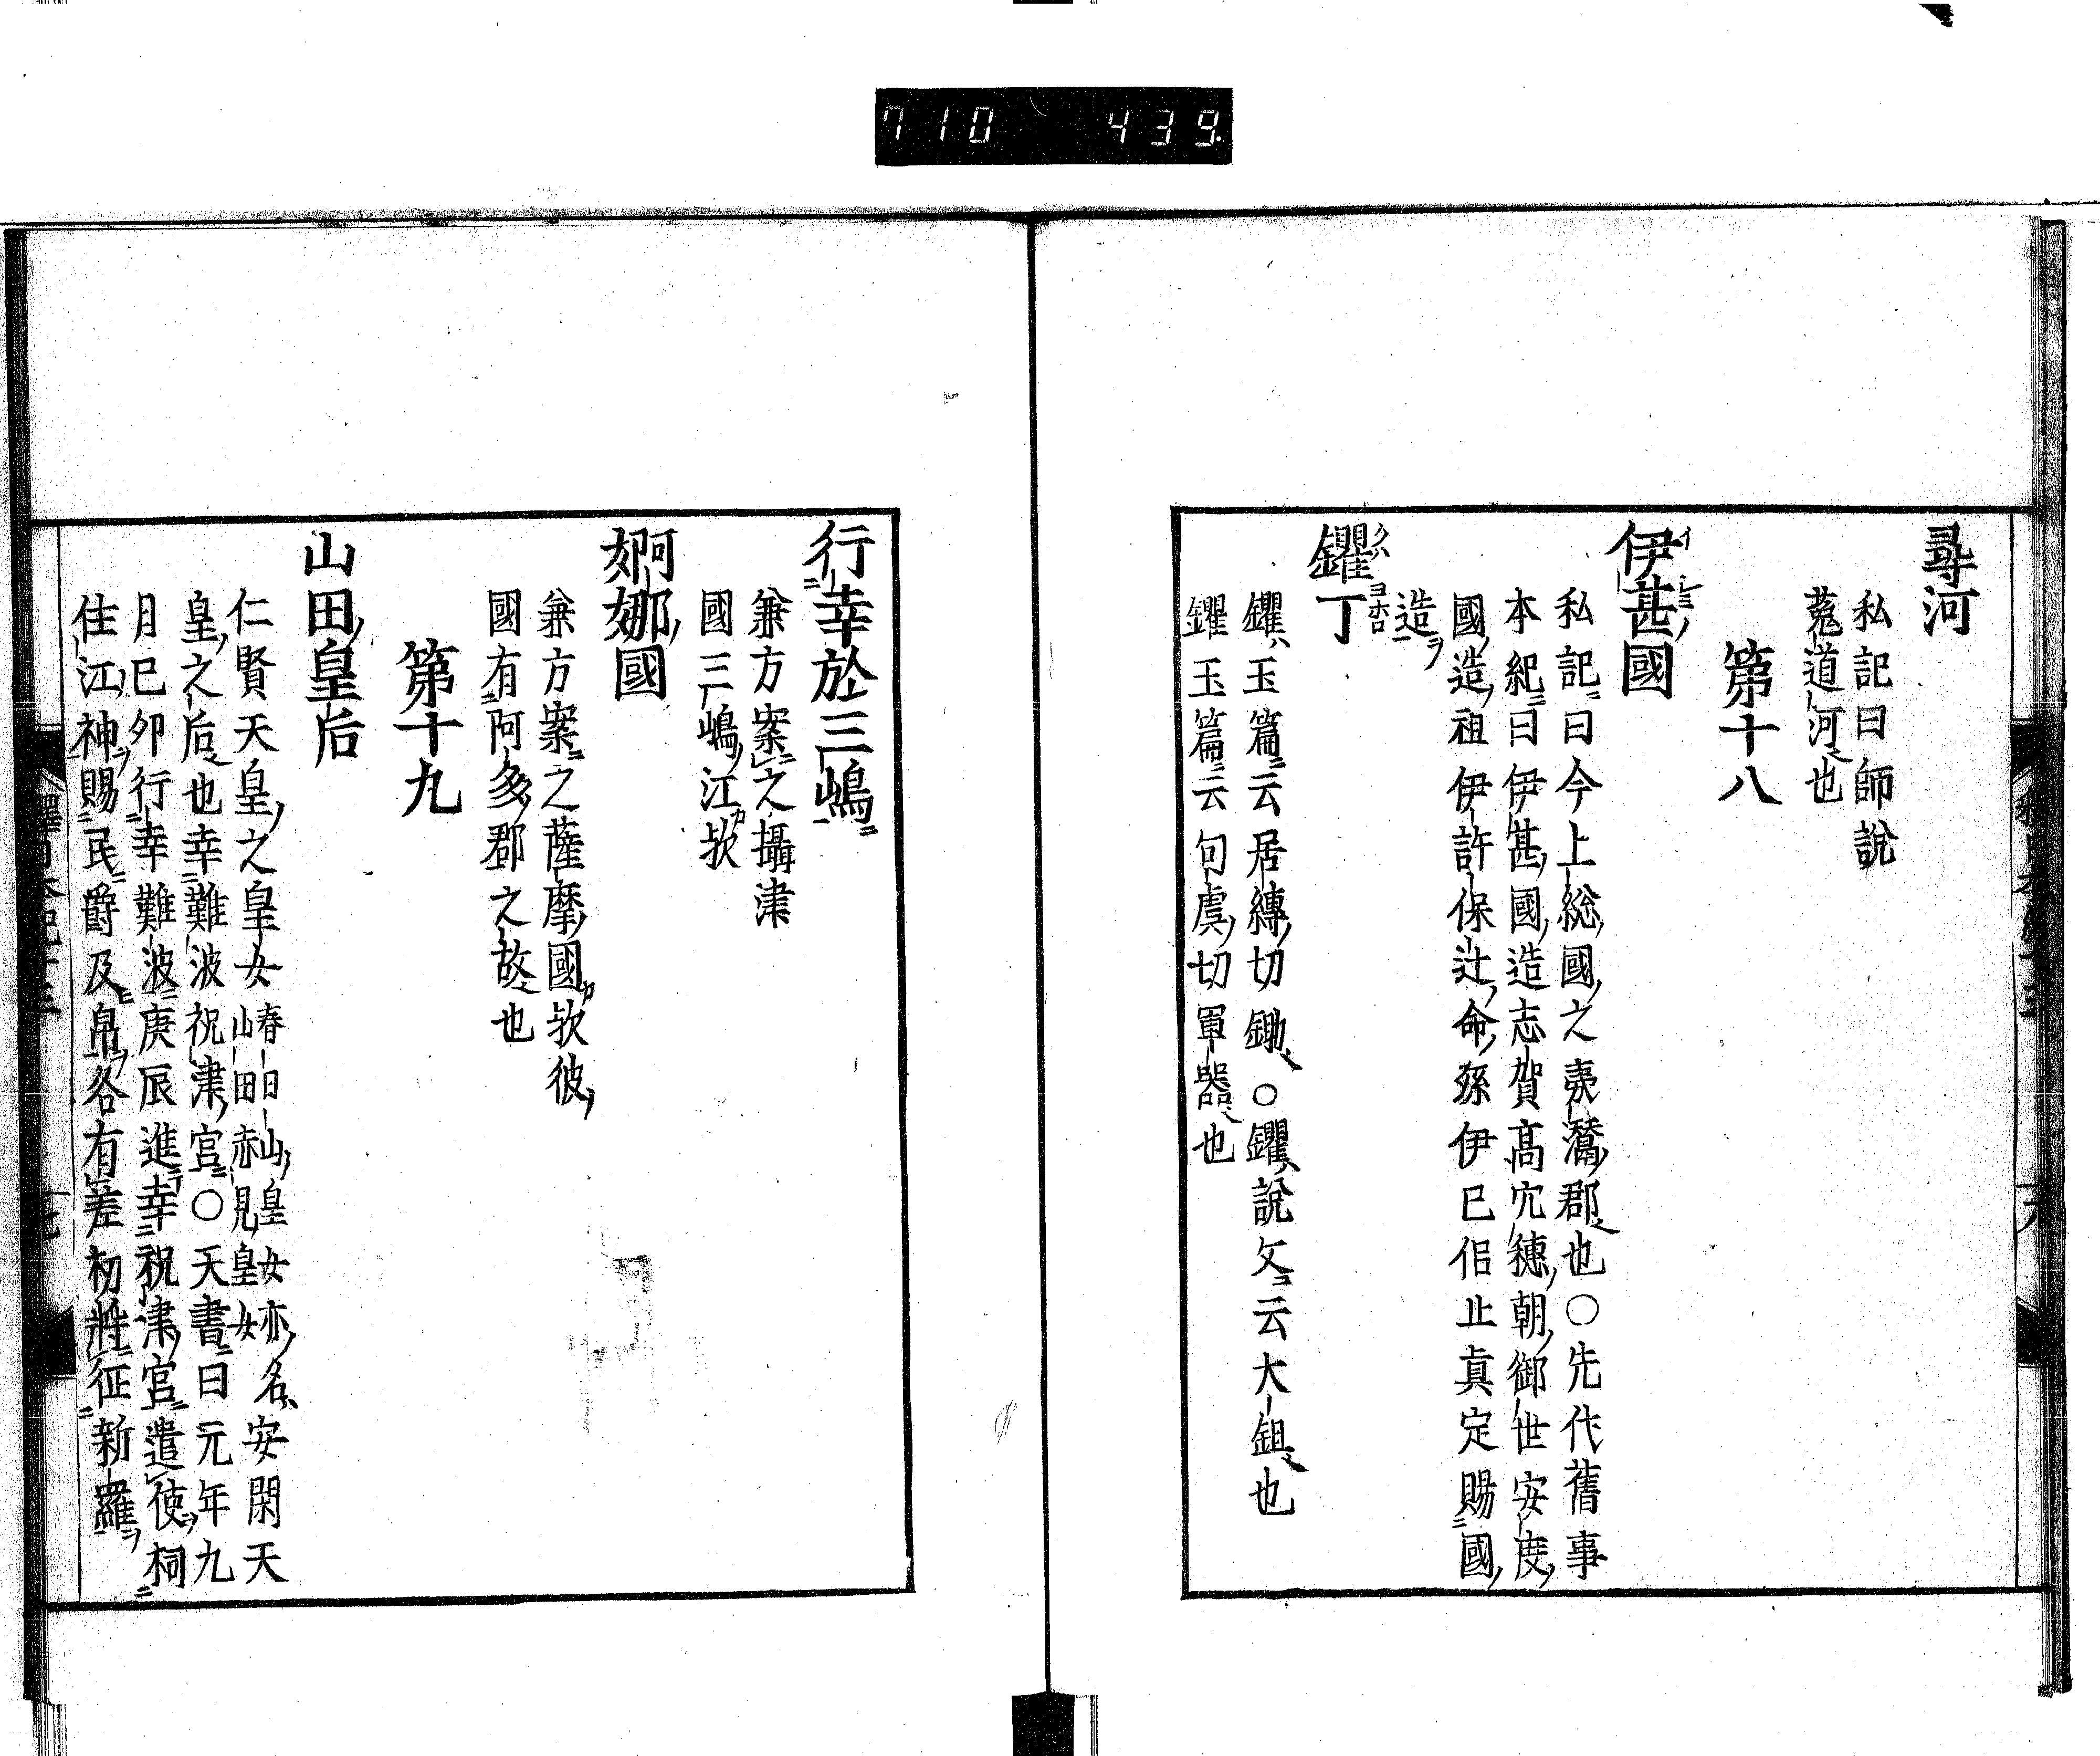 710 439
尋河
私記曰師說
菟道河也
第十八
伊甚國
私記曰今上総國之夷灊郡也○先代舊事
本紀曰伊甚國造志賀高宂穗朝御世安度
國造祖伊許保辻命孫伊巳侶止真定賜國
造
钁丁
钁玉篇云居縛切鋤○钁說文云大鉏也
鑺玉篇云句虞切軍器也
行幸於三嶋
兼方案之攝津
國三嶋江歟
婀娜國
兼方案之薩摩國歟彼
國有阿多郡之故也
第十九
山田皇后
仁賢天皇之皇女春日山皇女亦名山田赤見皇女安閑天
皇之后也幸難波祝津宮○天書曰元年九
月巳卯行幸難波庚辰進幸祝津宮遣使祠
住江神賜民爵及帛各有差初將征新羅